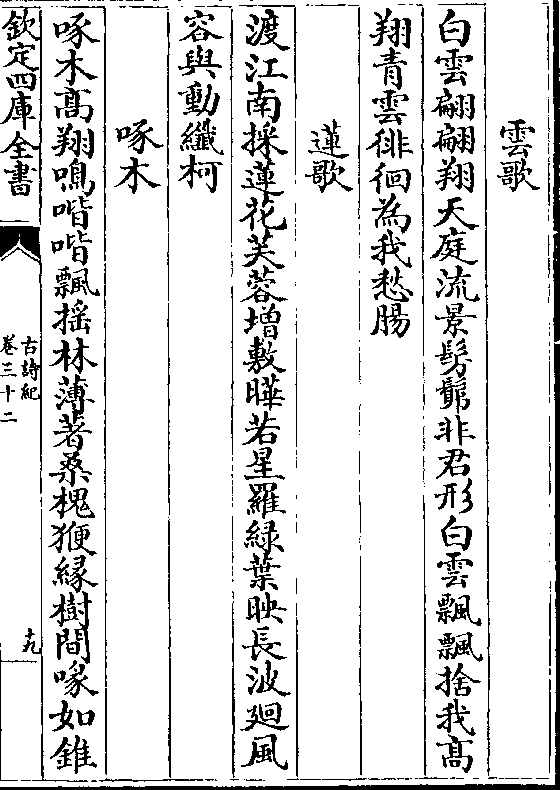 雲歌
白雲翩翩翔天庭流景髣髴非君形白雲飄飄捨我髙
翔青雲徘徊為我愁腸
蓮歌
渡江南採蓮花芙蓉增敷曄若星羅緑葉映長波廻風
容與動纖柯
啄木
啄木髙翔鳴喈喈飄揺林薄著桑槐狸縁樹間喙如錐
欽定四庫全書
古詩紀
卷三十二
十九